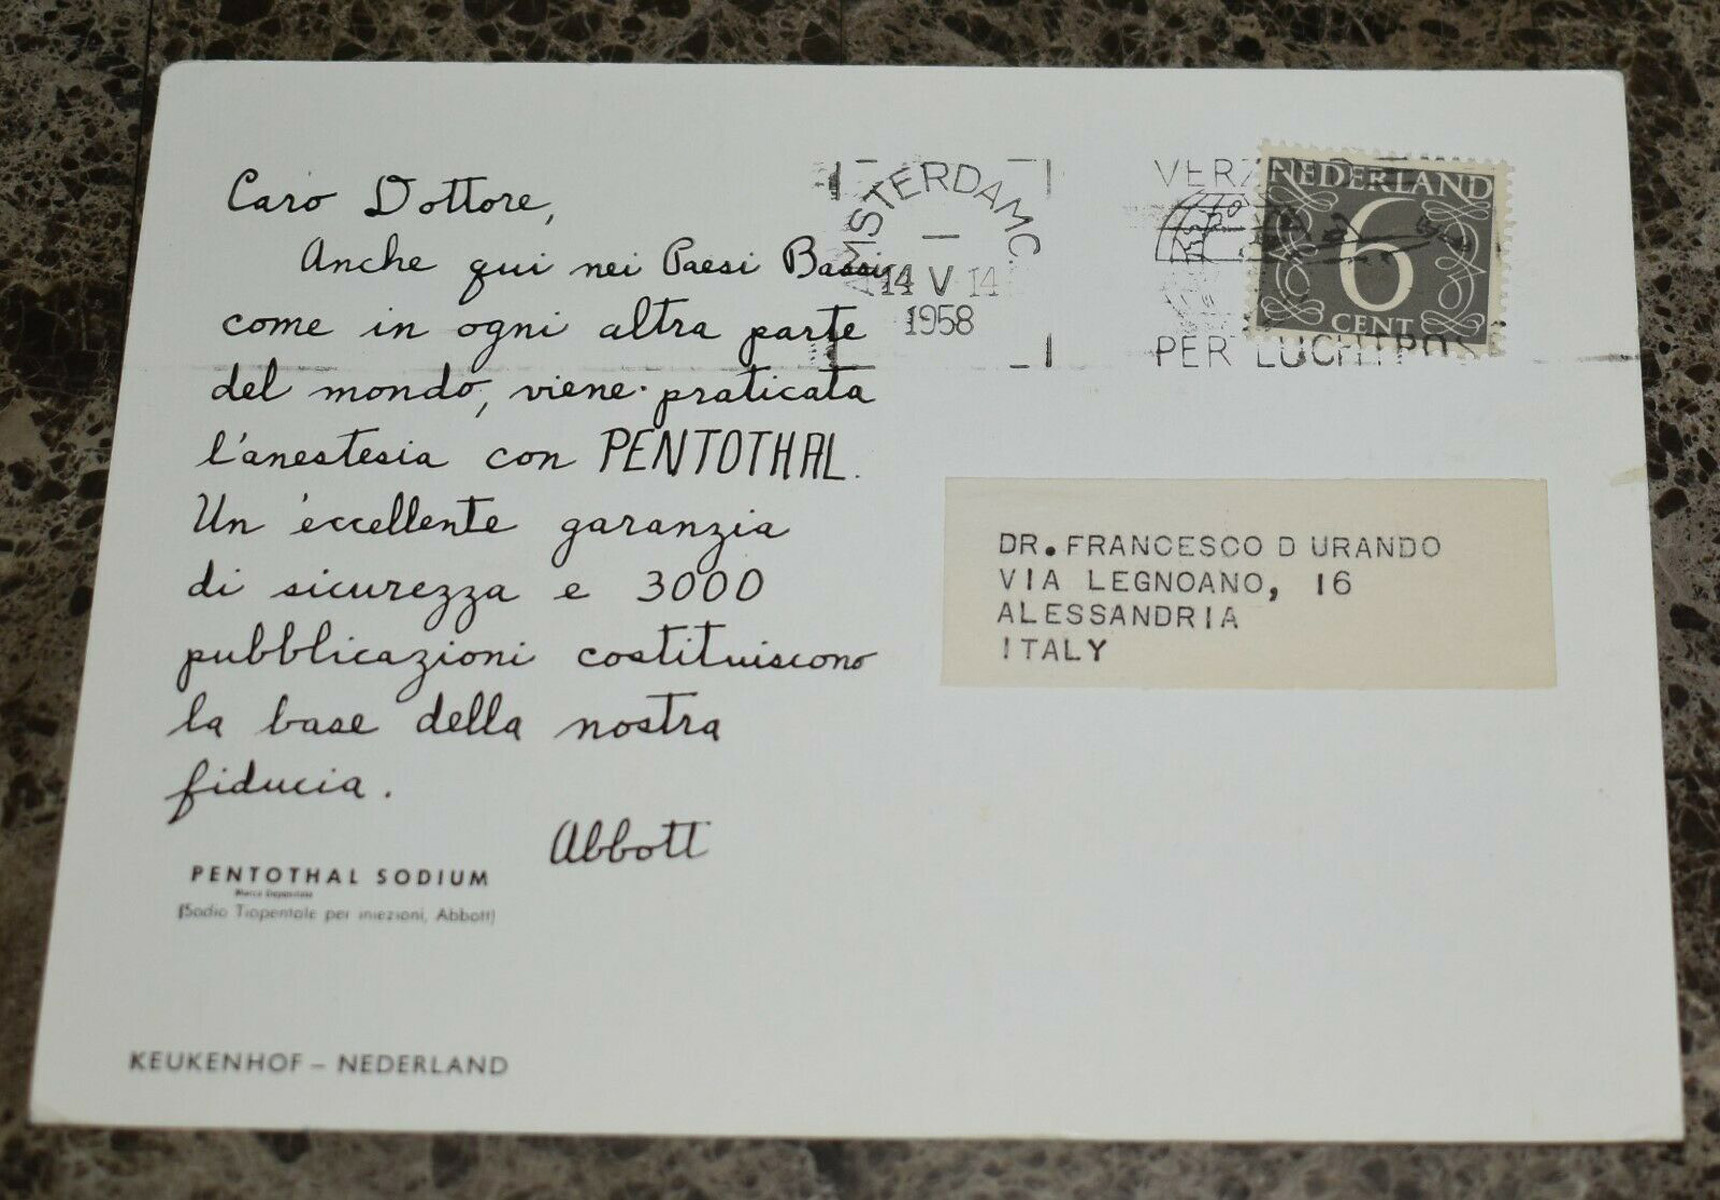 Caro Dottore,
Anche qui nei Paesi Bassi
come in ogni altra parte
del mondo, viene praticata
l'anestesia con PENTOTHAL.
Un eccellente garanzia
di sicurezza e 3000
pubblicazioni costituiscono
la base della nostra
fiducia.
Abbott
PENTOTHAL SODIUM
Marca Depositata
(Sodio Tiopentale per iniezioni, Abbott)
KEUKENHOF – NEDERLAND
AMSTERDAM C
14 V 14
1958
PER LUCHTPOS
NEDERLAND
6
CENT
DR. FRANCESCO D URANDO
VIA LEGNOANO, 16
ALESSANDRIA
ITALY